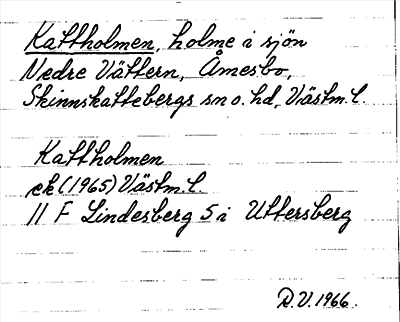 Kattholmen, holme i sjön
Nedre Vättern, Åmesbo,
Skinnskattebergs sn o. hd, Västm. l.
Kattholmen
ek (1965) Västm. l.
11 F Lindesberg 5 i Uttersberg
D.V. 1966.